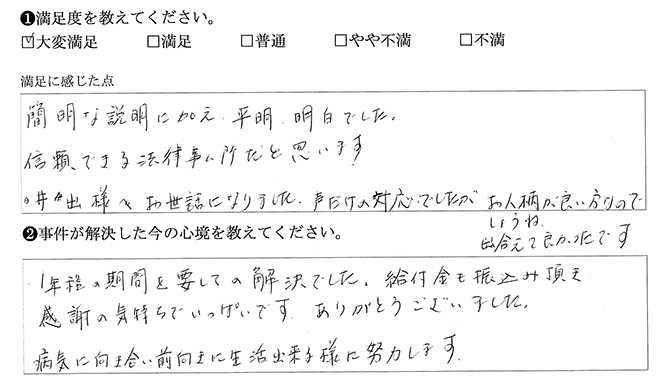 ❶満足度を教えてください。
☑大変満足 □満足 □普通 □やや不満 □不満
満足に感じた点
簡明な説明に加え、平明、明白でした。
信頼、できる法律事ム所だと思います
井出様へお世話になりました。声だけの対応でしたが お人柄が良い方なので
しょうね。
出合えて良かったです
❷事件が解決した今の心境を教えてください。
1年程の期間を要しての解決でした。給付金も振込み頂き
感謝の気持ちでいっぱいです。ありがとうございました。
病気に向き合い前向きに生活出来る様に努力します。